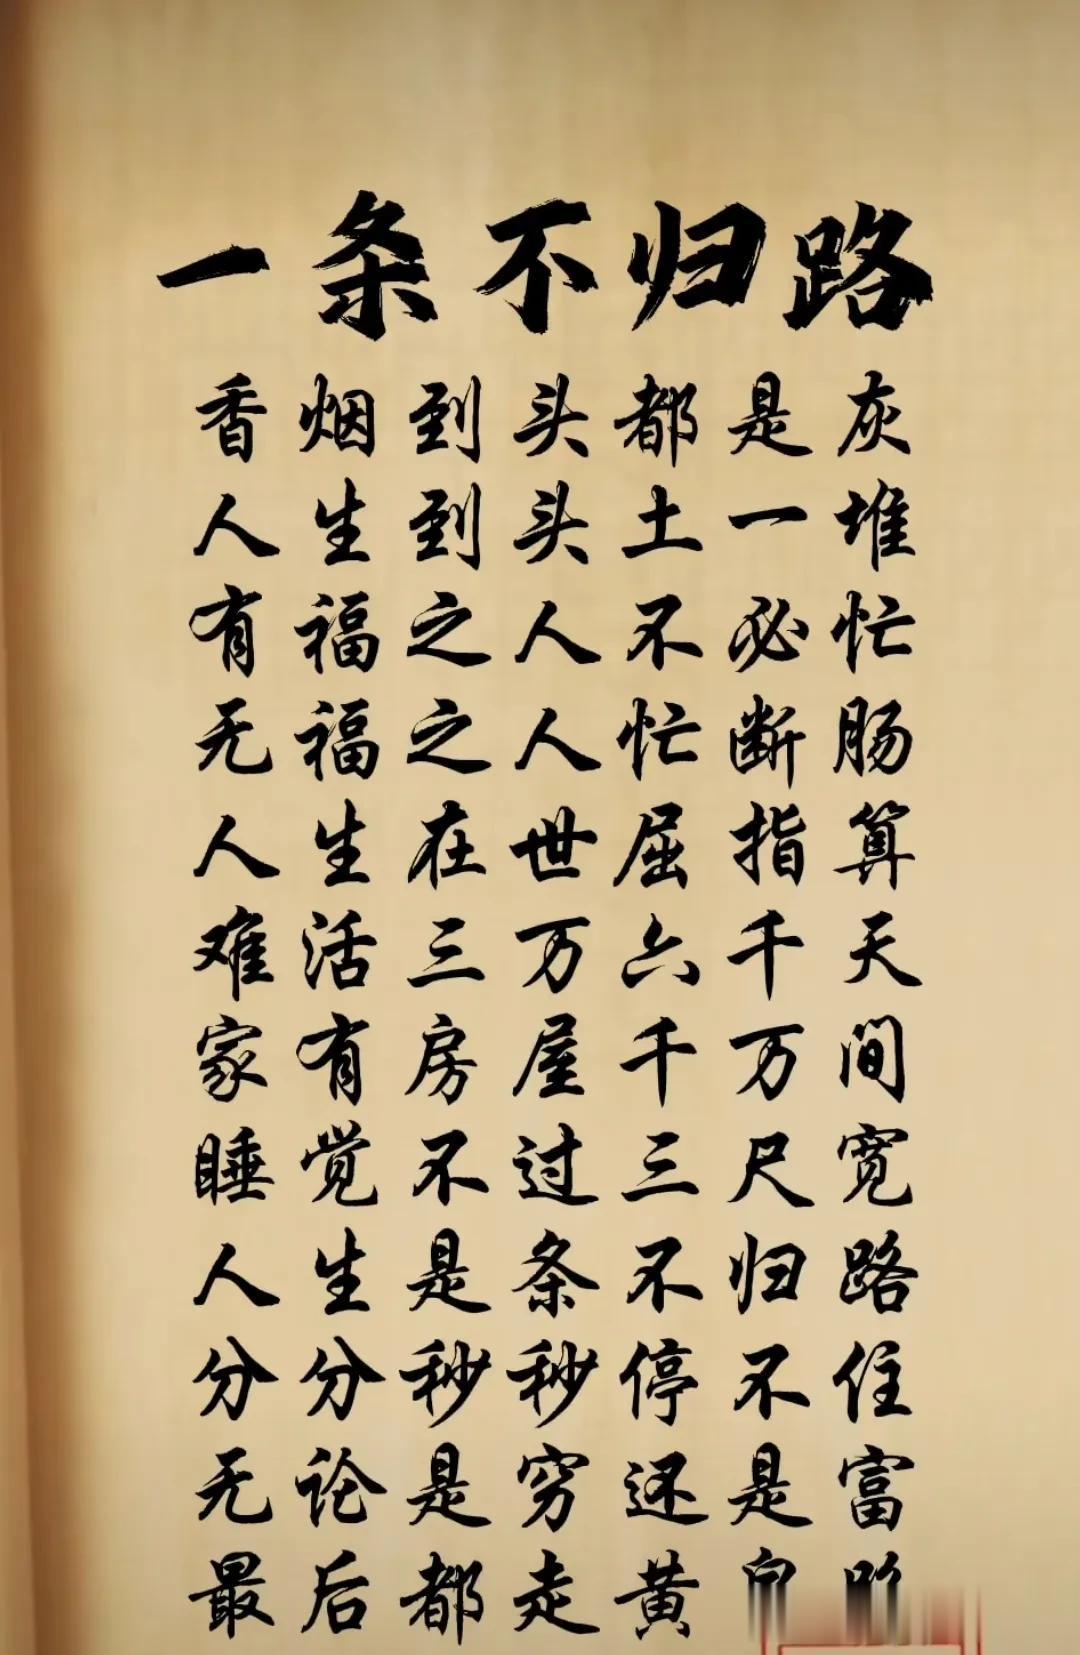 一条不归路
香烟到头都是灰
人生到头土一堆
有福之人不必忙
无福之人忙断肠
人生在世屈指算
难活三万六千天
家有房屋千万间
睡觉不过三尺宽
人生是条不归路
分分秒秒停不住
无论是穷还是富
最后都走黄